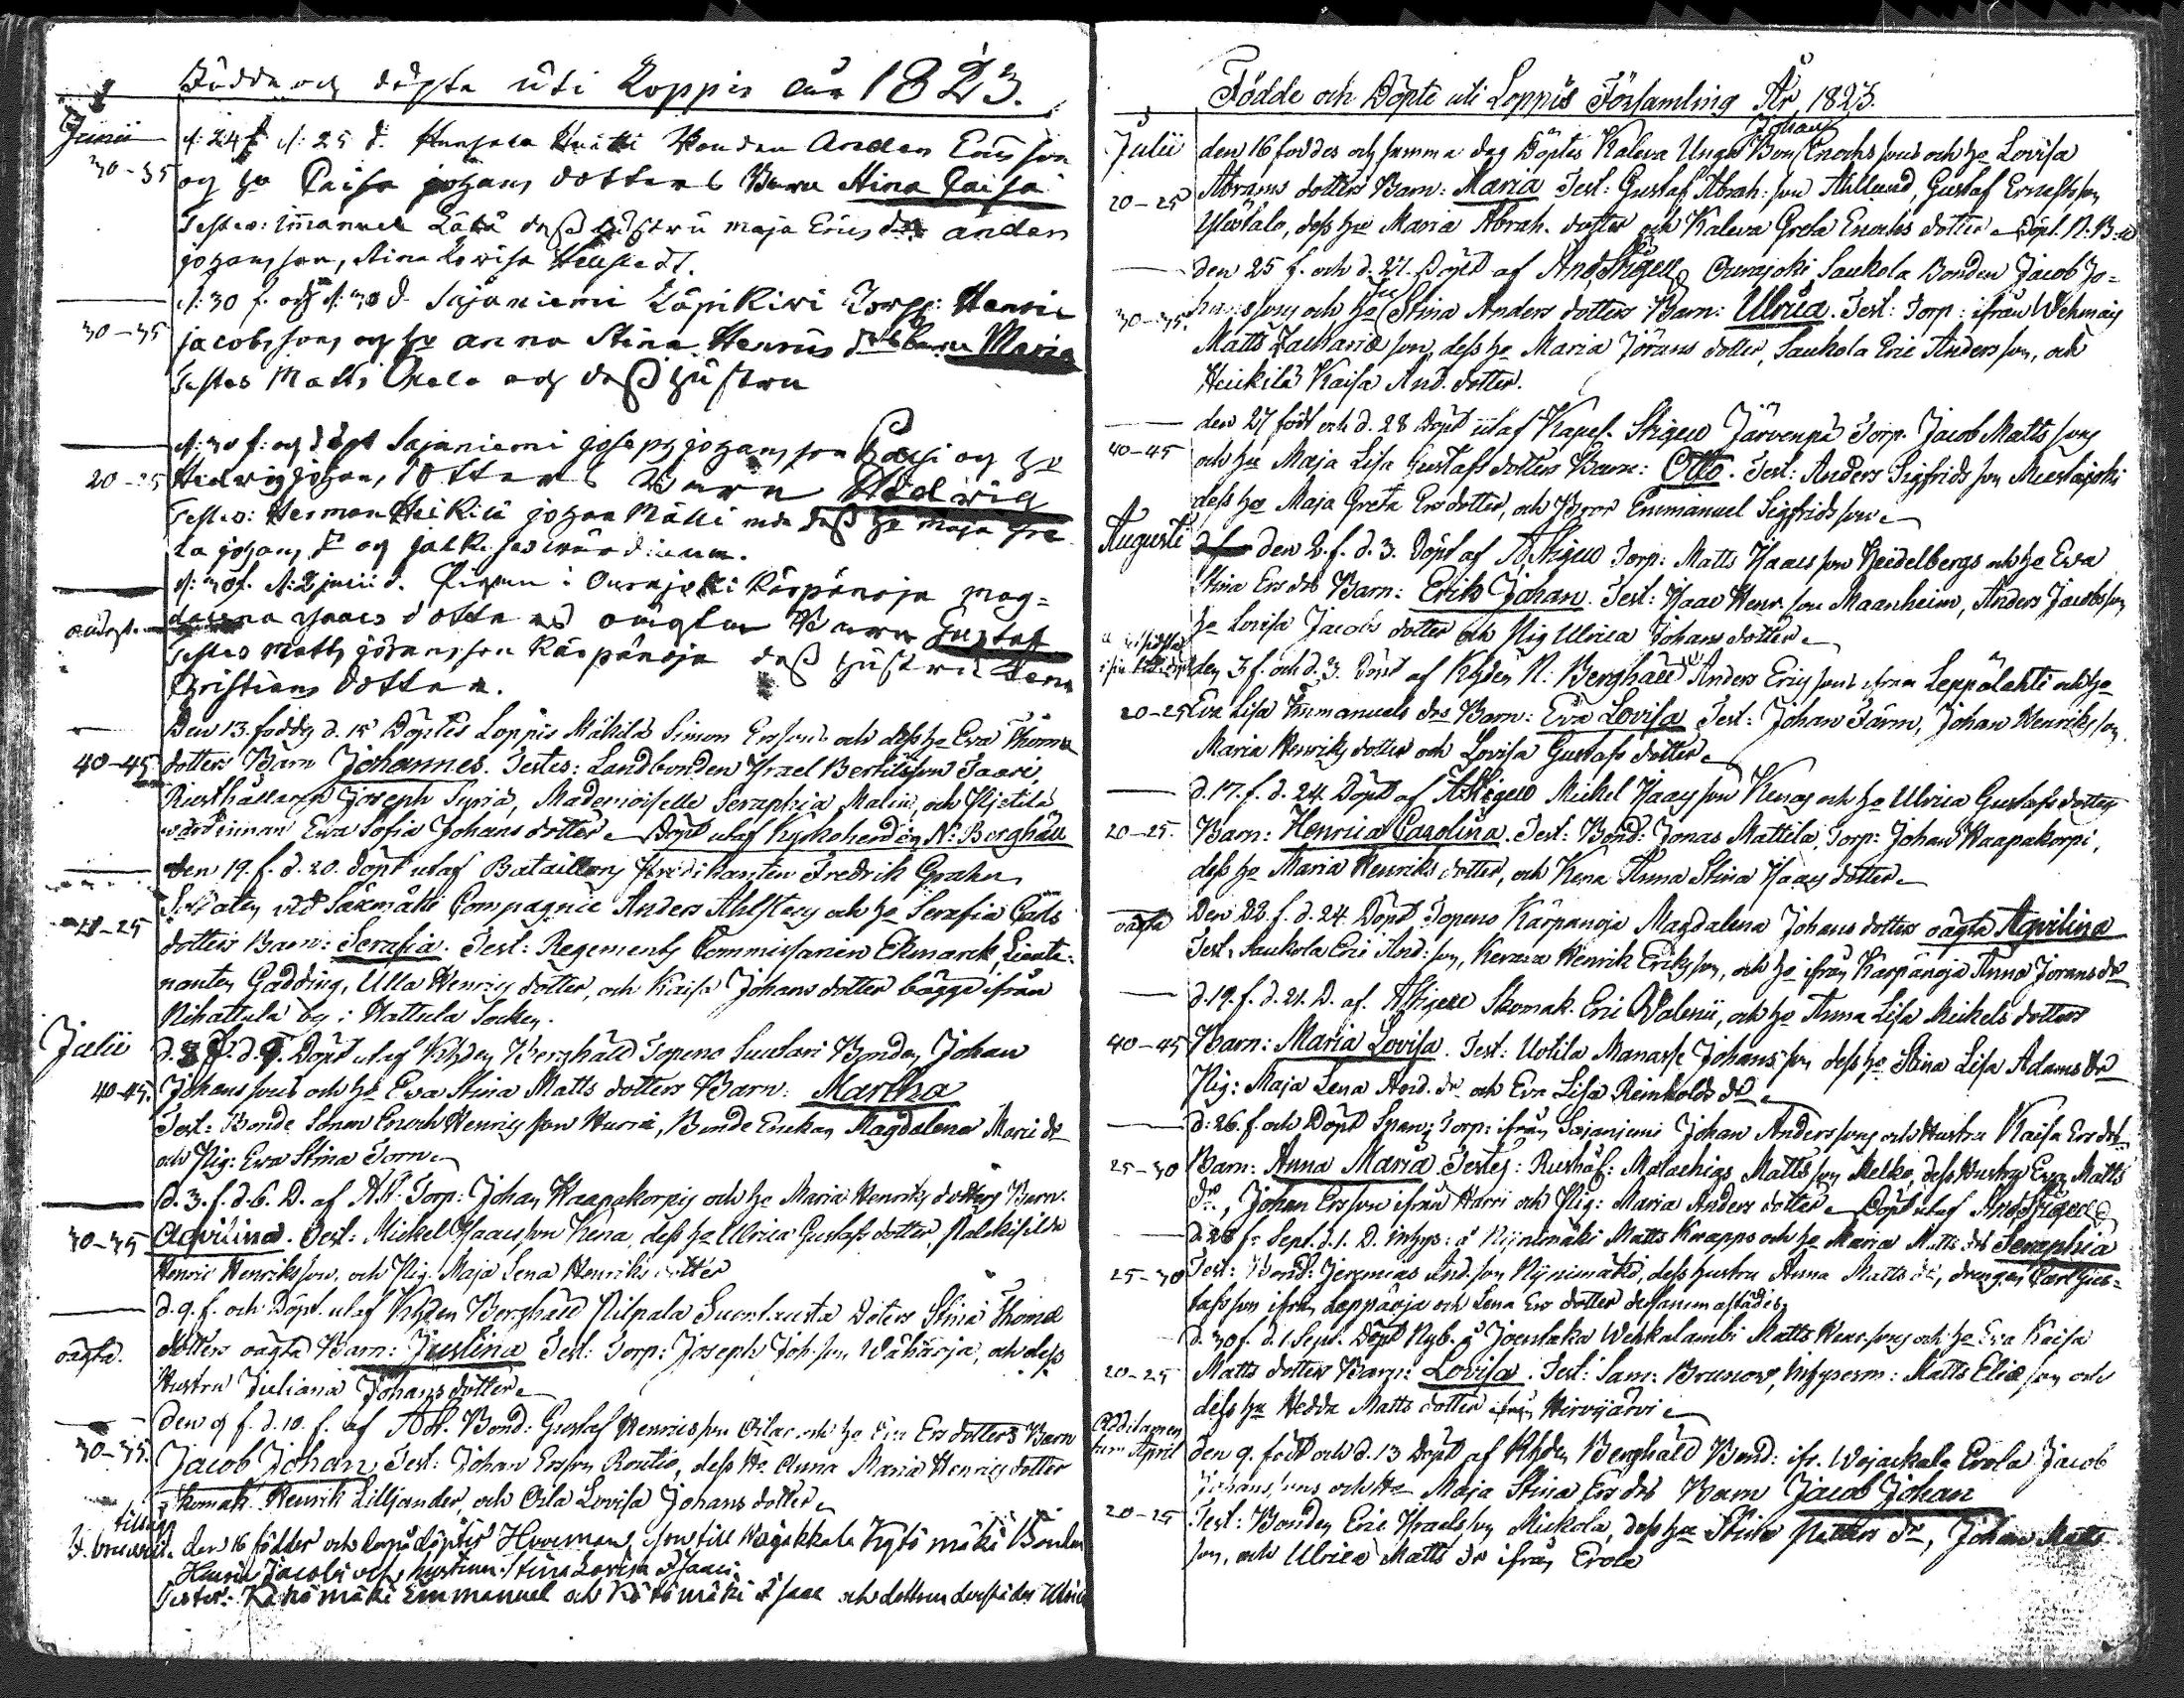 Födde och döpte uti Loppis År 1823.
Junii
d: 24 f d: 25 d. Bonden Anders Ericsson
30-35
och h:u Caisa Johans dotters Barn Stina Caisa
Testes: Immanuel dess hustru Maja Erics d:r Anders
Johansson, Stina Lovisa
d: 30 f. och d: 30 d. Sajaniemi Torp: Henric
30-35
Jacobsson och hu Anna Stina Henrics Barn Maria
Testes Matts och dess hustru
d: 30 f. och döpt Sajaniemi Joseph Johansson och hu
20-25
Hedwig Johans dotters Barn Hedwig
Testes: Herman Heikilä Johan Nälli med dess hu Maja Gre
ta Johans dr och
d: 30 f. d: 2 Junii d. Pigan i Ourajoki Kärpänoja Mag=
oächt.
dalena Isaacs dotters oächta Barn Gustaf
Testes Matts Göransson Kärpänoja dess hustru Lena
Christians dotter.
Den 13. foddes d. 15 Döptes Loppis Mäkilä Simon Erssons och dess hu Eva Thomæ
40-45
dotters Barn Johannes. Testes: Landbonden Israel Bertilsson Saari,
Rusthållaren Joseph Syriä, Mademoiselle Seraphia Malin, och Hietilä
värdinnan Eva Sofia Johans dotter Döpt utaf Kyrkoherden N: Berghäll
den 19. f. d. 20. döpt utaf Bataillons Predikanten Fredrik Grahn
Soldaten vid Säxmäki Compagnie Anders Ahlsten och hu Serafia Carls
-25
dotters Barn: Serafia. Test: Regements Commissarien Ekmarck, Lieute:
nanten Gadding, Ulla Henrics dotter, och Kaisa Johans dotter bägge ifrån
Nihattula by i Hattula Socken.
Julii
d. 8 f. d. 9. Döpt utaf Khden Berghäll Topeno Suutari Bonden Johan
40-45.
Johanssons och hu Eva Stina Matts dotters Barn: Martha
Test: Bonde Sonen Enoch Henricsson Huria, Bonde Enkan Magdalena Marci dr
och Pig: Eva Stina Torn
d. 3. f. d. 6. D. af A.S. Torp: Johan Haapakorpis och hu Maria Henriks dotters Barn.
30-35
Aqvilina. Test: Mickel Isaacsson Kena, dess hu Ulrica Gustafs dotter,
Henric Henriksson, och Pig. Maja Lena Henriks dotter
d. 9. f. och Döpt. utaf Khden Berghäll Pilpala Dotters Stina Thomæ
oägta.
dotters oägta Barn: Justina Test: Torp: Joseph Joh:son Wähäoja, och dess
Hustru Juliana Johans dotter
den 9 f. d. 10. f. af A.S. Bond: Gustaf Henricsson och hu Eva Ers dotters Barn
30-35.
Jacob Johan, Test: Johan Ersson Routio, dess Hu Anna Maria Henrics dotter
Skomak. Henrik Lilljander, och Lovisa Johans dotter
tillägg
den 16 födder och döpter Herman, son till Wojakkala Kytömäki Bonden
Henric Jacobs och hustrun Stina Lovisa Isaacs.
Testes: Kytömäki Emmanuel och Kytömäki Isaac och dottren derstädes Ulrica
Födde och Döpte uti Loppis Församling År 1823.
Julii
den 16 foddes och samma dag Döptes Kaleva Unga Bon Johan Enochssons och hu Lovisa
20-25
Abrams dotters Barn: Maria Test: Gustaf Abrah:son Ahllund, Gustaf Ernestsson
Ylöstalo, dess hu Maria Abrah. dotter och Kaleva Greta Enochs dotter Döpt. N: B-ll
den 25 f. och d. 27. Döpt af And Stigell Ourajoki Saukola Bonden Jacob Jo=
30-35.
hanssons och hu Stina Anders dotters Barn: Ulrica. Test: Torp: ifrån Wehmais
Matts Zachariæ son, dess hu Maria Jörans dotter, Saukola Eric Andersson, och
Heikilä Kaisa And. dotter.
den 27 födt och d. 28 Döpt utaf Kapel. Stigell Järvenpä Torp. Jacob Mattssons
40-45
och hu Maja Lisa Gustafs dotters Barn: Otto. Test: Anders Sigfridsson Mustajoki
dess hu Maja Greta Ers dotter, och Emmanuel Sigfridsson
Augusti
den 2. f. d. 3. Döpt af AStigell Torp: Matts Isaacsson Heidelbergs och hu Eva
Stina Ers drs Barn: Erik Johan. Test: Isaac Henr:son Maanheim, Anders Jacobsson
hu Lovisa Jacobs dotter och Pig Ulrica Johans dotter
den 3 f. och d. 3. Döpt af Khden N: Berghäll Anders Ericssons ifrån Leppälahti och hu
20-25
Eva Lisa Immanuels drs Barn: Eva Lovisa Test: Johan Färm, Johan Henriksson,
Maria Henriks dotter och Lovisa Gustafs dotter
d. 17. f. d. 24. Döpt af AStigell Mickel Isaacsson Kenas och hu Ulrica Gustafs dotters
20-25.
Barn: Henrica Carolina. Test: Bond: Jonas Mattila, Torp: Johan Haapakorpi,
dess hu Maria Henriks dotter, och Kena Anna Stina Isaacs dotter
oägta
Den 22. f. d. 24. Döpt Topeno Kärpänoja Magdalena Johans dotters oägta Aqvilina
Test. Saukola Eric And:son, Kerara Henrik Eriksson, och hu ifrån Kärpänoja Anna Jörans dr
d. 19. f. d. 21. D. af. AStigell Skomak. Eric Valenii, och hu Anna Lisa Mickels dotters
40-45
Barn: Maria Lovisa. Test: Uotila Manasse Johansson dess hu Stina Lisa Adams dr
Pig: Maja Lena And. dr och Eva Lisa Reinholds dr
d: 26. f. och Döpt Torp: ifrån Sajaniemi Johan Anderssons och Hustru Kaisa Ers drs
25-30
Barn: Anna Maria. Testes: Rusthål: Malachias Mattsson Melko, dess Hustru Eva Matts
dr, Johan Ersson ifrån Harri och Pig: Maria Anders dotter Döpt utaf And Stigell
d. 28 f: Sept. d. 1. D. inhys: å Nijnimäki Matts Knapps och hu Maria Matts drs Seraphia
25-30
Test: Bond: Jeremias And.son Nijnimäki, dess hustru Anna Matts dr, drengen Carl Gus=
tafsson ifrån Loppärja och Lena Ers dotter dersammastädes
d. 30 f. d. 1. Sept. Döpt Nyb. å Joentaka Wehkalambi Matts Henr:sons och hu Eva Kaisa
20-25
Matts dotters Barn: Lovisa. Test: Sam: Brunow, Inhysesm: Matts Eliæ son och
dess hu Hedda Matts dotter ifrån Hirvijärvi
Additamen
tum April
den 9. födt och d. 13 Döpt af Khden Berghäld Bond: ifr. Wojackala Erola Jacob
Johanssons och Hu Maja Stina Ers drs Barn Jacob Johan
20-25
Test: Bonden Eric Israelsson Mickola, dess hu Stina Petters dr, Johan Matts
son, och Ulrica Matts dr ifrån Erola